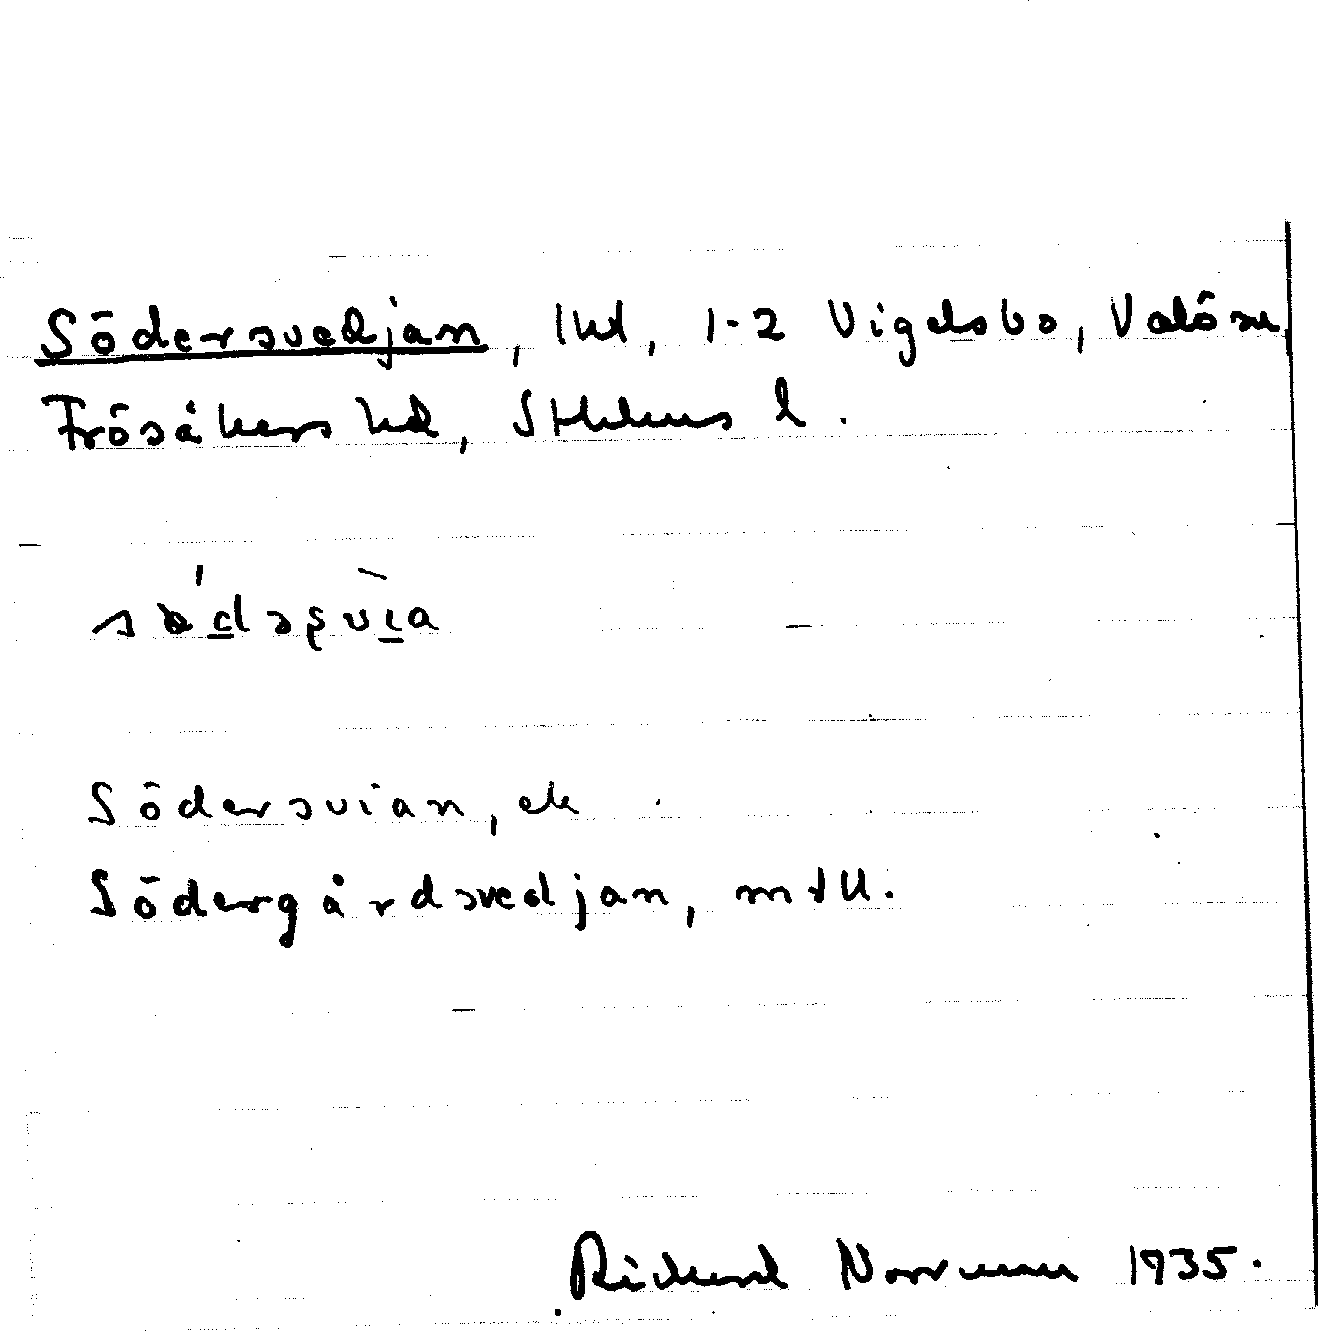 Södersvedjan, lhd, 1-2 Vigelsbo, Valö sn,
Frösåkers hd, Sthlms l.
Södersvian, ek
Södergårdsvedjan, mtll.
Richard Norrman 1935.